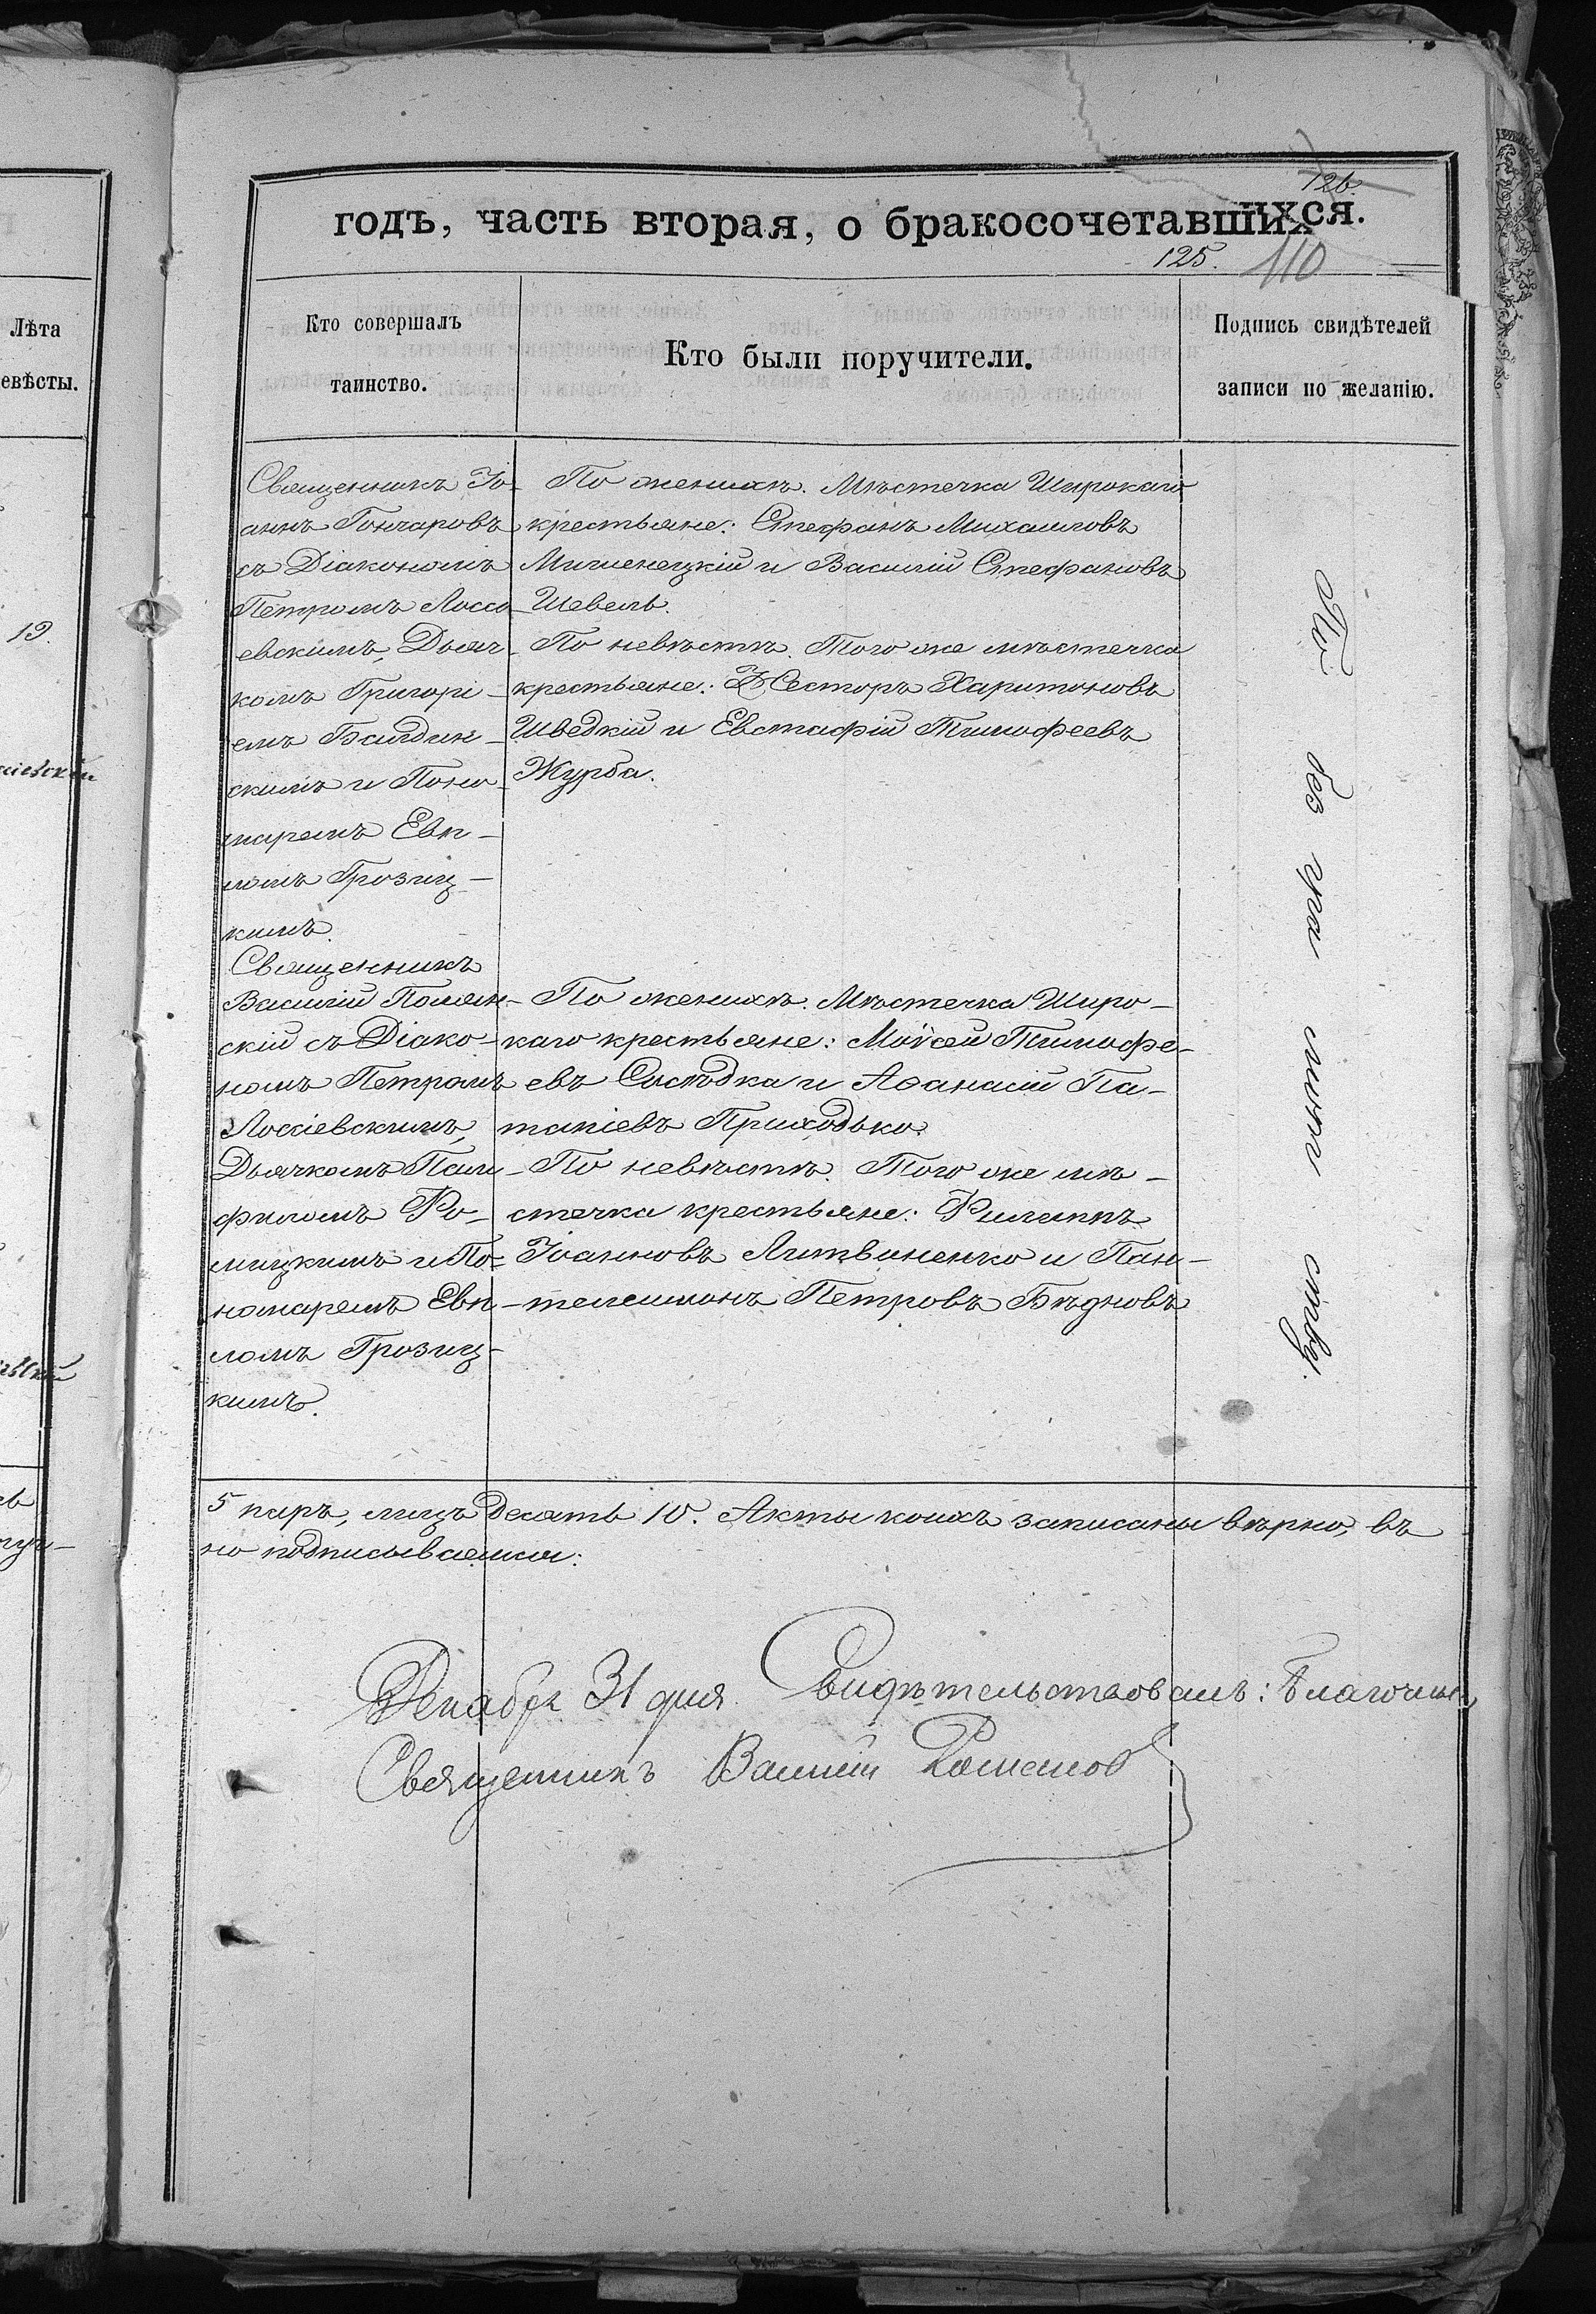 126.
годъ, часть вторая, о бракосочетавшихся.
125. 110
Лѣта
евѣсты.
19.
Кто совершалъ
таинство.
Кто были поручители.
Подпись свидѣтелей
записи по желанію.
Священникъ Іо-
аннъ Гончаровъ
съ Діакономъ
Петромъ Лосса-
евскимъ, Дьяч-
комъ Григорі-
емъ
скимъ и Поно-
маремъ Евп-
ломъ Грозиц-
кимъ.
По женихѣ. Мѣстечка Широкаго
крестьяне: Стефанъ Михаиловъ
Мишенецкій и Василій Стефановъ
Шевель.
По невѣстѣ. Того же мѣстечка
крестьяне: Несторъ Харитоновъ
Шведкій и Евстафій Тимофеевъ
Журба.
Священникъ
Василій Полян-
скій съ Діако-
номъ Петромъ
Лосіевскимъ,
Дьячкомъ Пам-
филомъ Ро-
мицкимъ и По-
номаремъ Евп-
ломъ Грозиц-
кимъ.
По женихѣ. Мѣстечка Широ-
каго крестьяне: Моѵсей Тимофе-
евъ Сысѣдка и Аѳанасій Па-
тапіевъ Приходько.
По невѣстѣ. Того же мѣ-
стечка крестьяне: Филиппъ
Іоанновъ Литвиненко и Пан-
телеимонъ Петровъ Бѣдновъ
5 паръ, лицъ десять 10. Акты коихъ записаны вѣрно, въ
но подписываемся:
Декабря 31 дня. Свидѣтельствовалъ: Благочин.
Священникъ Василій Романов